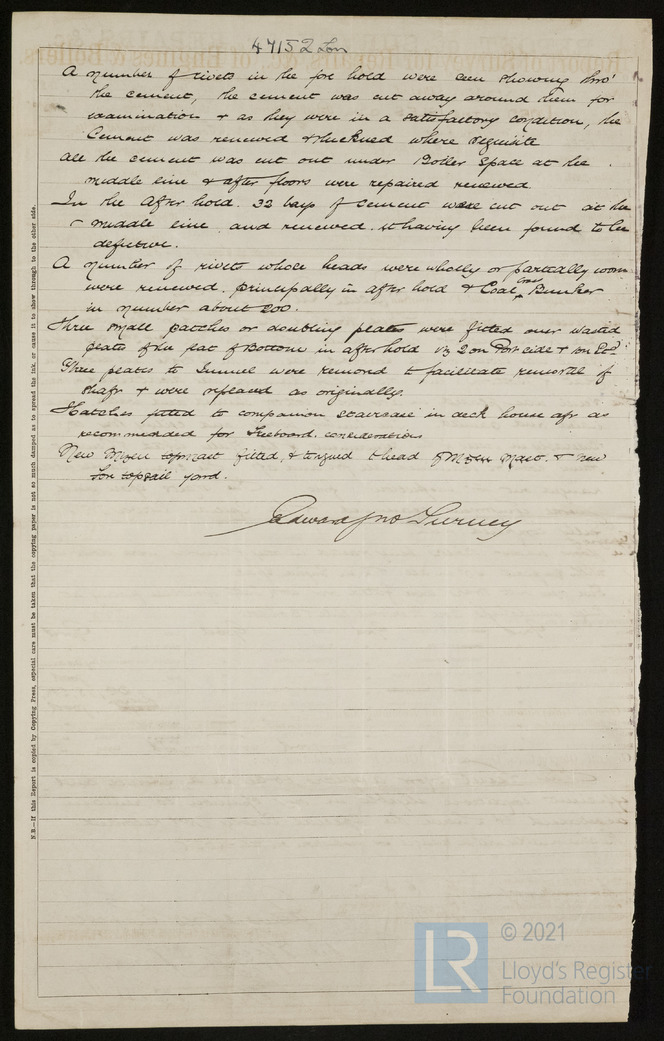 47152 Lon
A number of rivets in the fore hold were seen showing thro'
the cement, the cement was cut away around them for
examination & as they were in a satisfactory condition, the
Cement was renewed & thickened where requisite
All the cement was cut out under Boiler Space at the
middle line & after floors were repaired renewed
In the After hold. 33 bays of cement were cut out at the
middle line and renewed. it having been found to be
defective.
A number of rivets whole heads were wholly or partially worn
were renewed. principally in after hold & Cross Coal Bunker
in number about 200.
Three small patches or doubling plates were fitted over wasted
plates of the flat of Bottom in after hold viz 2 on Port side & on
Three plates to Tunnel were removed to facilitate removal of
shaft & were replaced as originally.
Hatches fitted to companion staircase in deck house aft as
recommended for freeboard. considerations
New Mizen topmast fitted, & head of Mizen Mast. & new
fore topsail yard.
Edward Jno Gurney
N.B.—If this Report is copied by Copying Press, especial care must be taken that the copying paper is not so much damped as to spread the ink, or cause it to show through to the other side.
LR
© 2021
Lloyd's Register
Foundation